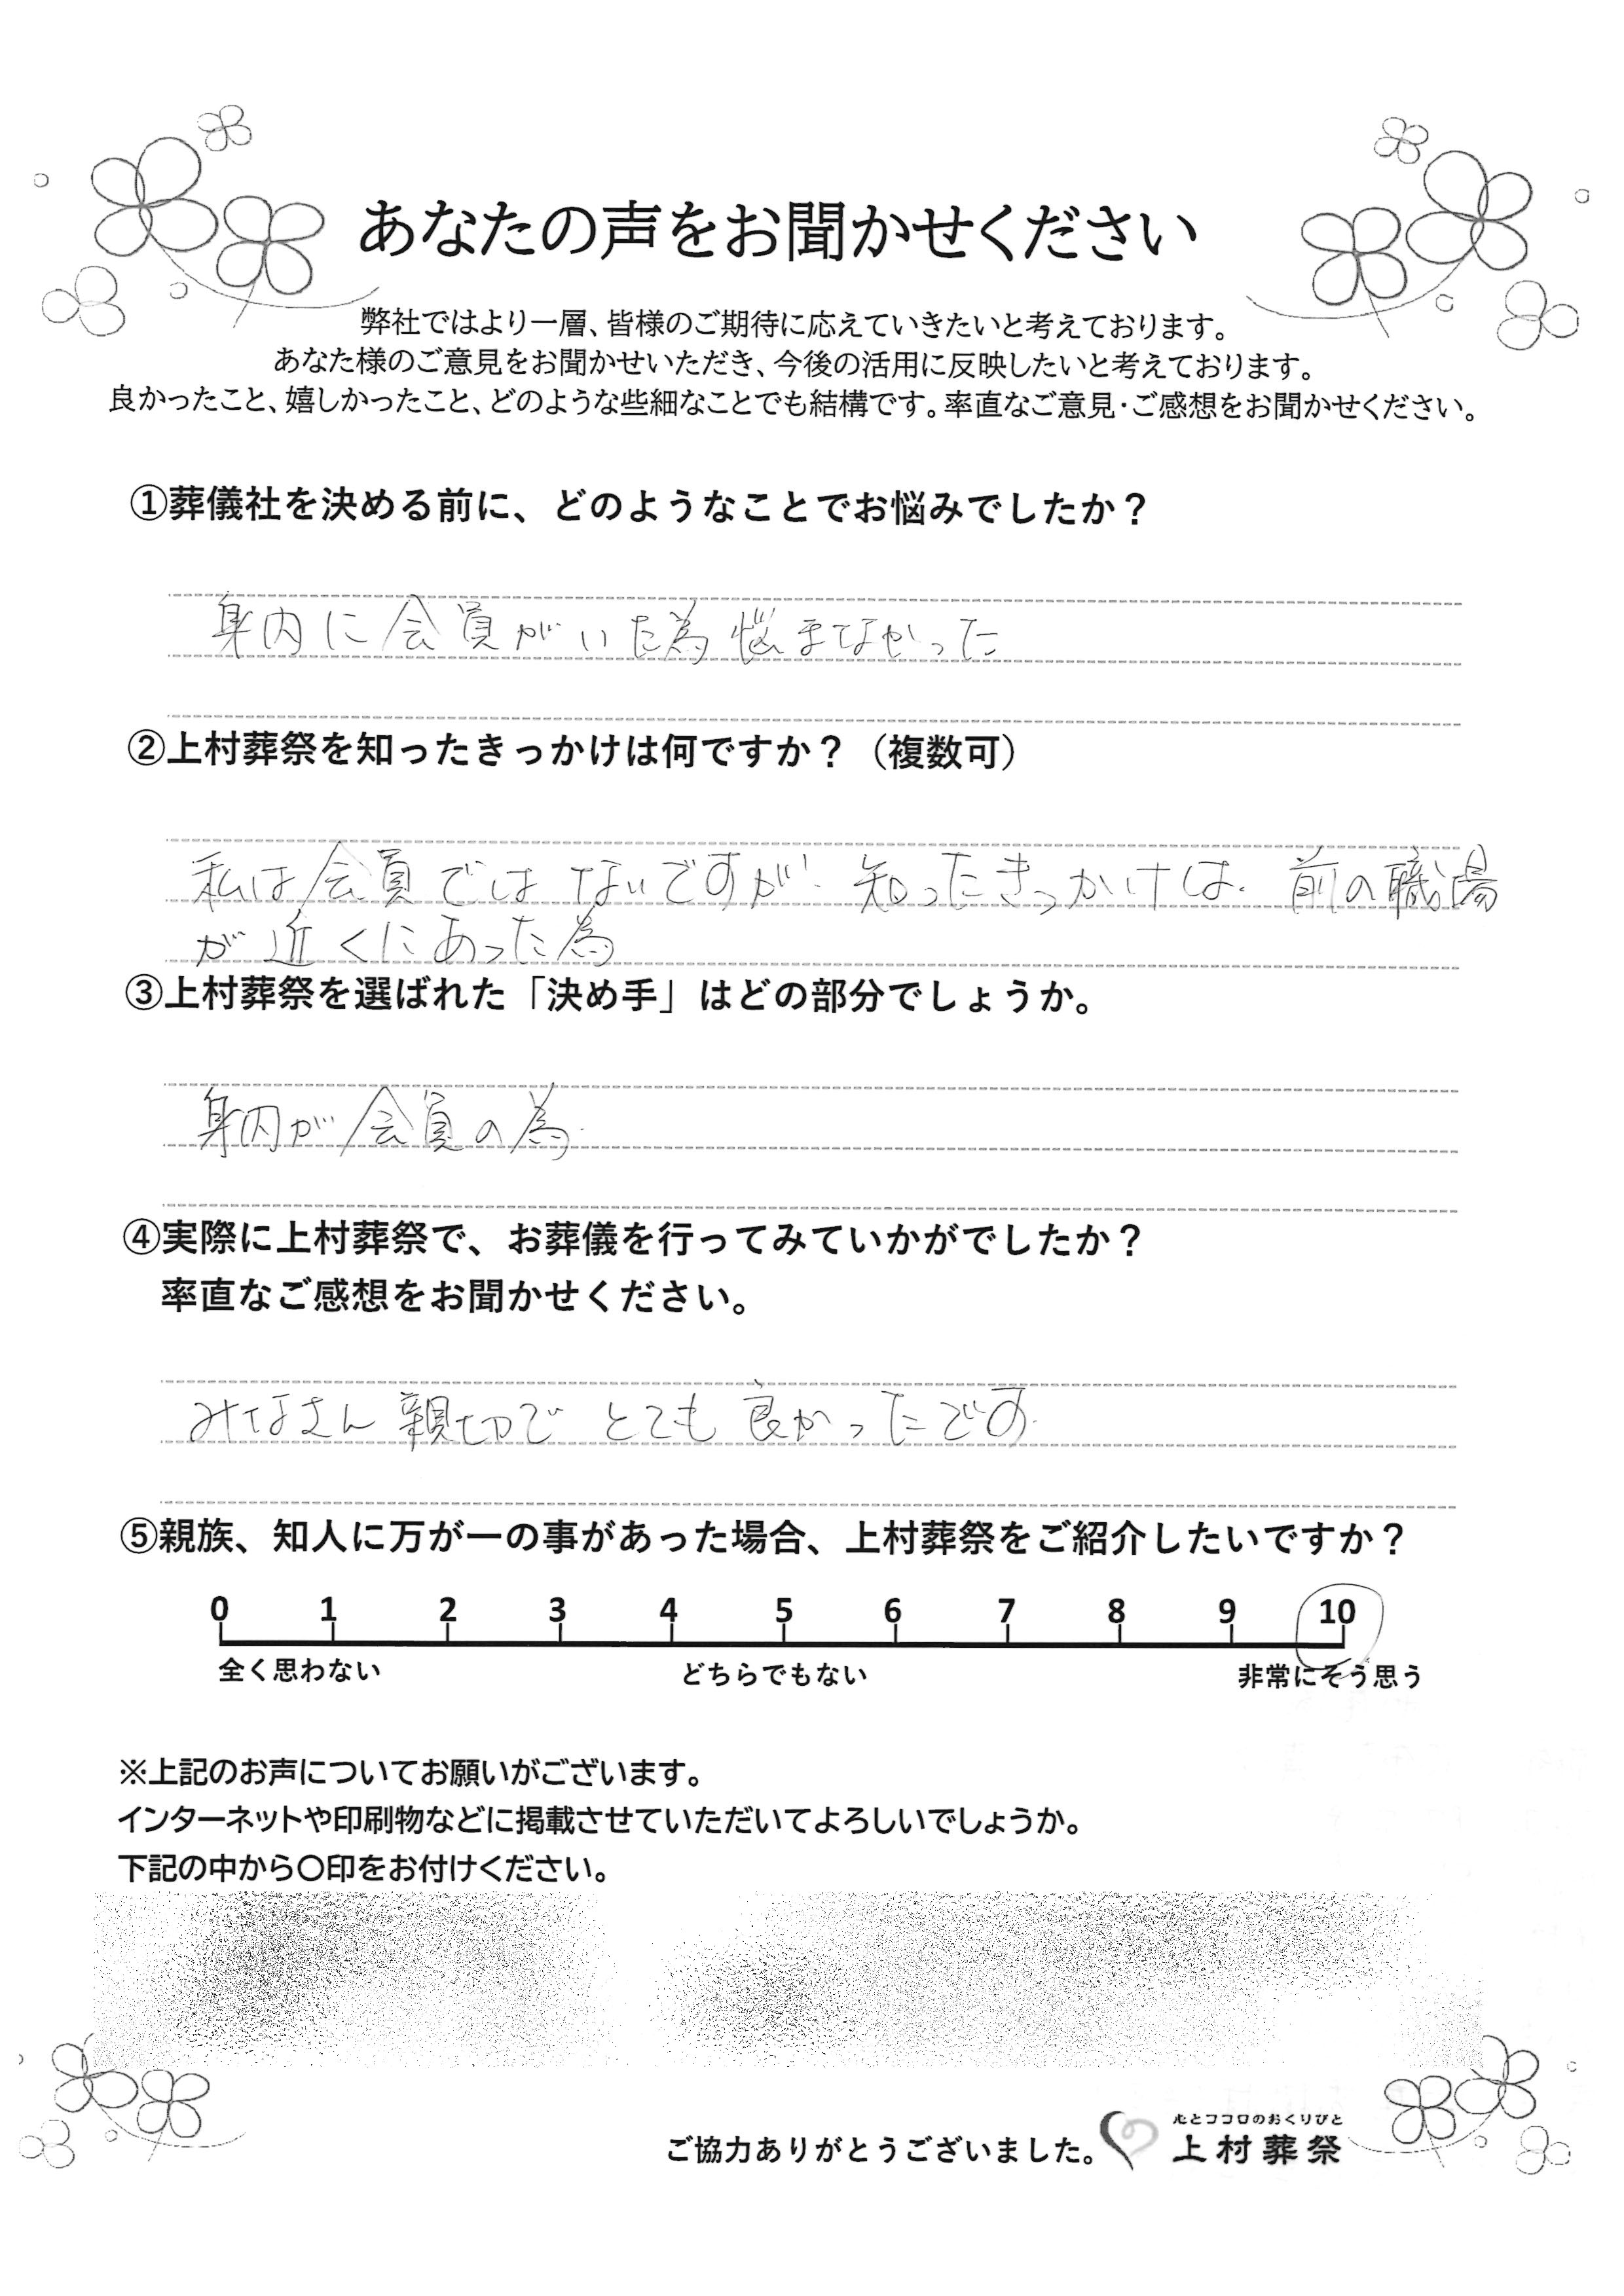 あなたの声をお聞かせください
弊社ではより一層、皆様のご期待に応えていきたいと考えております。
あなた様のご意見をお聞かせいただき、今後の活用に反映したいと考えております。
良かったこと、嬉しかったこと、どのような些細なことでも結構です。率直なご意見・ご感想をお聞かせください。
①葬儀社を決める前に、どのようなことでお悩みでしたか？
身内に会員がいた為悩まなかった
②上村葬祭を知ったきっかけは何ですか？（複数可）
私は会員ではないですが、知ったきっかけは、前の職場
が近くにあった為
③上村葬祭を選ばれた「決め手」はどの部分でしょうか。
身内が会員の為.
④実際に上村葬祭で、お葬儀を行ってみていかがでしたか？
率直なご感想をお聞かせください。
みなさん親切でとても良かったです.
⑤親族、知人に万が一の事があった場合、上村葬祭をご紹介したいですか？
0 1 2 3 4 5 6 7 8 9 10
全く思わない どちらでもない 非常にそう思う
※上記のお声についてお願いがございます。
インターネットや印刷物などに掲載させていただいてよろしいでしょうか。
下記の中から〇印をお付けください。
心とココロのおくりびと
ご協力ありがとうございました。 上村葬祭